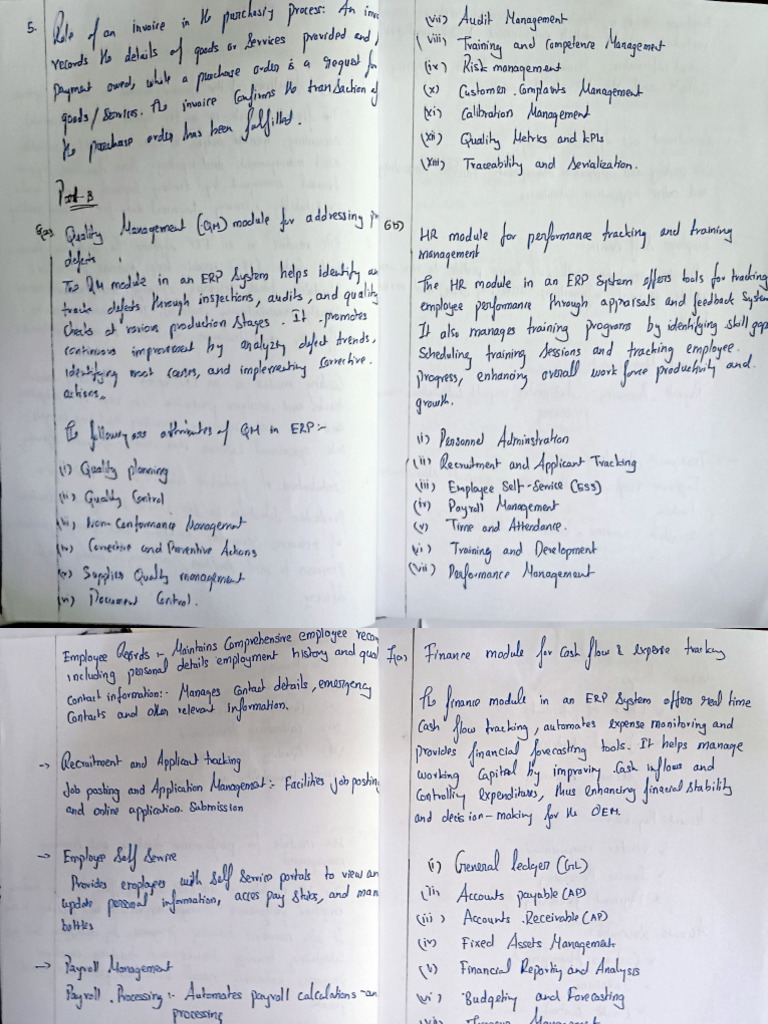 5. Role of an invoice in the purchasing process: An
records the details of goods or services provided and
payment owed, while a purchase order is a request for
goods/services. The invoice confirms the transaction
the purchase order has been fulfilled.
Part-B
6(a) Quality Management (QM) module for addressing
defects
The QM module in an ERP System helps identify
track defects through inspections, audits, and quality
checks at various production stages. It promotes
continuous improvement by analyzing defect trends,
identifying root causes, and implementing corrective
actions.
The following are attributes of QM in ERP:-
(i) Quality planning
(ii) Quality Control
(iii) Non-Conformance Management
(iv) Corrective and Preventive Actions
(v) Supplier Quality management
(vi) Document Control.
(vii) Audit Management
(viii) Training and competence Management
(ix) Risk management
(x) Customer Complaints Management
(xi) Calibration Management
(xii) Quality Metrics and KPIs
(xiii) Traceability and Serialization.
6b) HR module for performance tracking and training
management
The HR module in an ERP System offers tools for tracking
employee performance through appraisals and feedback System
It also manages training programs by identifying skill gap
Scheduling training sessions and tracking employee.
progress, enhancing overall work force productivity and
growth.
(i) Personnel Adminstration
(ii) Recruitment and Applicant Tracking
(iii) Employee Self-Service (ESS)
(iv) Payroll Management
(v) Time and Attendance.
(vi) Training and Development
(vii) Performance Management
Employee Records :- Maintains Comprehensive employee
including personal details employment history and
contact information:- Manages contact details, emergency
contacts and other relevant information.
→ Recruitment and Applicant tracking
Job posting and Application Management:- Facilities Job posting
and online application Submission
→ Employee Self Service
Provides employees with Self Service portals to view
update personal information, acces pay stubs, and
→ Payroll Management
Payroll Processing :- Automates payroll calculations
processing
7(a) Finance module for Cash flow & expense tracking
The finance module in an ERP System offers real time
Cash flow tracking, automates expense monitoring and
provides financial forecasting tools. It helps manage
working Capital by improving Cash inflows and
Controlling expenditures, thus enhancing financial stability
and decision-making for the OEM.
(i) General ledger (GL)
(ii) Accounts payable (AP)
(iii) Accounts Receivable (AP)
(iv) Fixed Assets Management
(v) Financial Reporting and Analysis
(vi) Budgeting and Forecasting